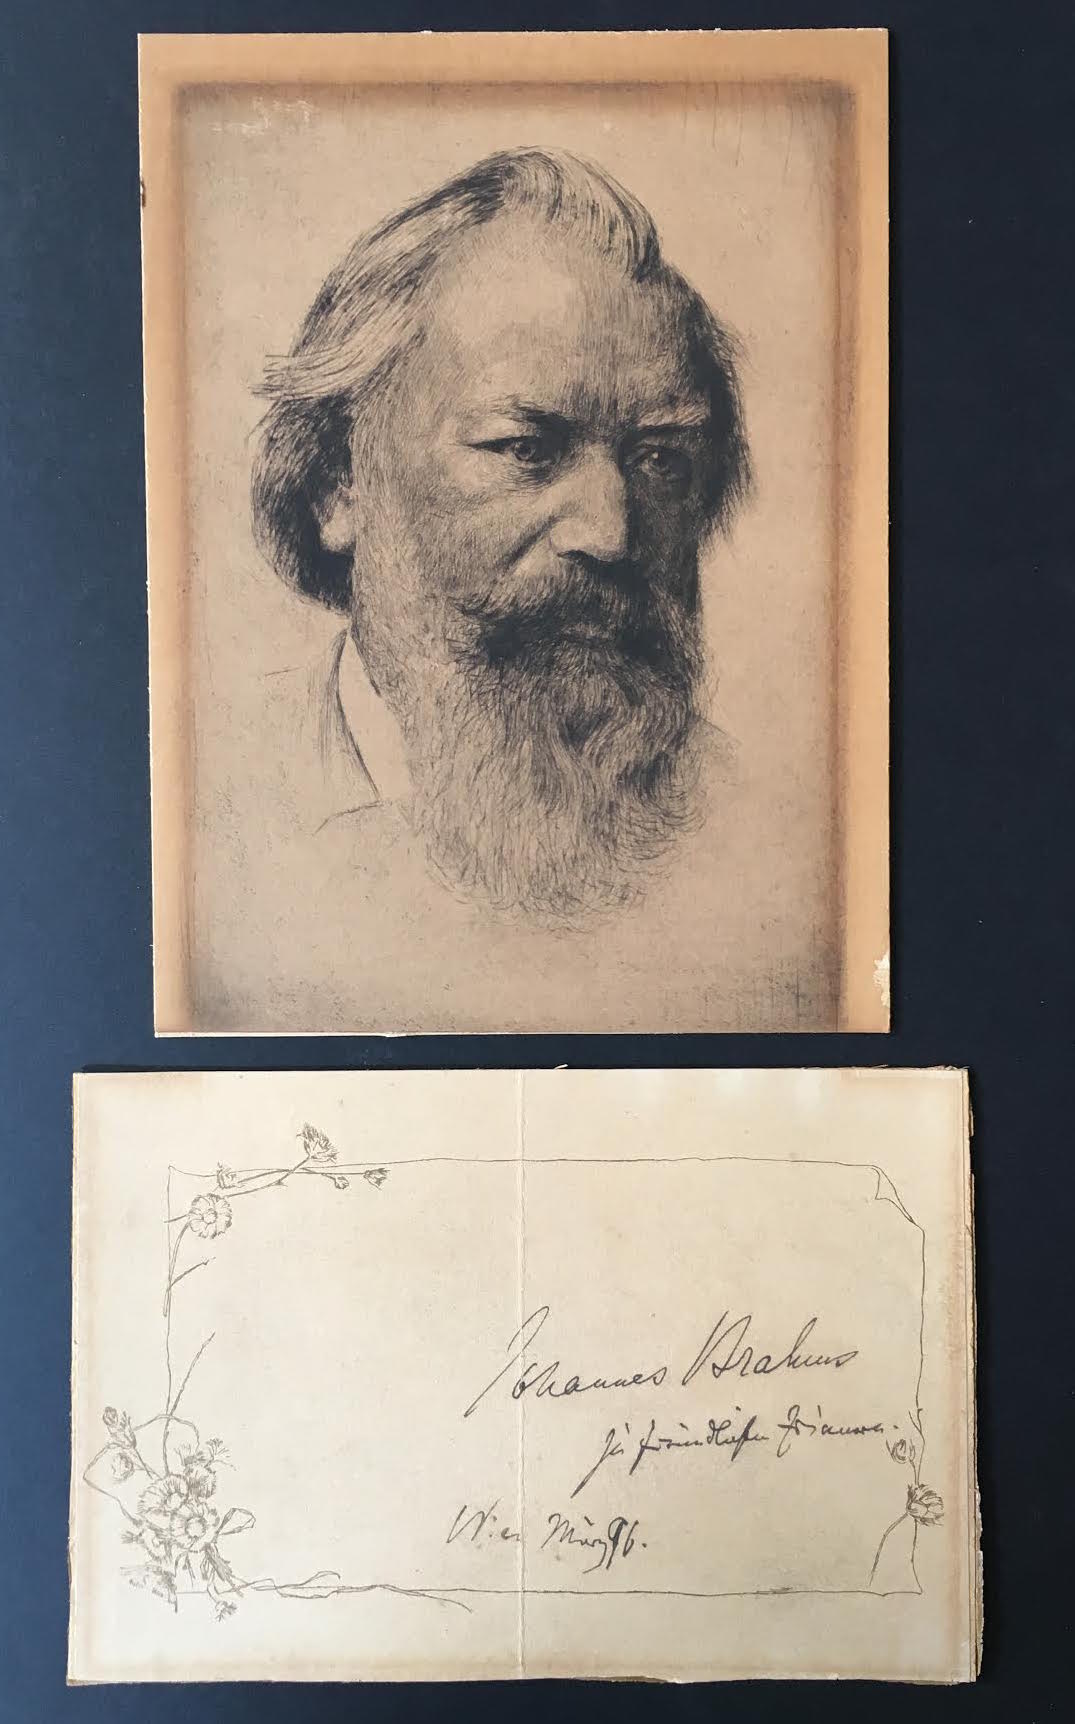 Johannes Brahms
zu freundlichem Erinnern.
Wien März 96.